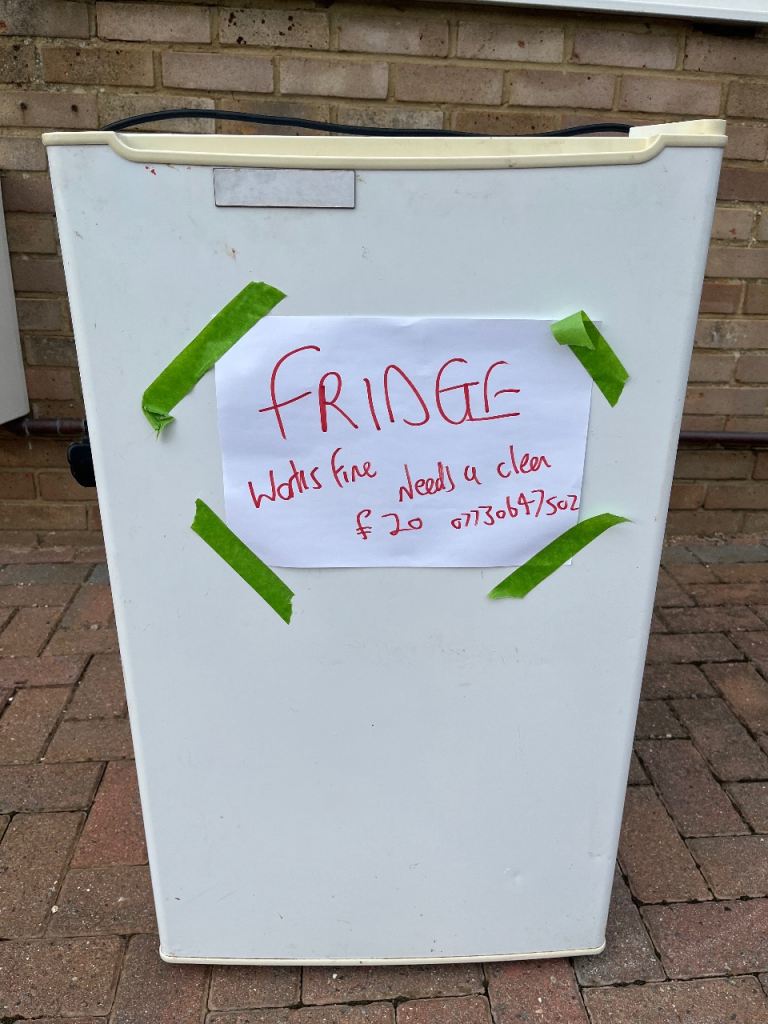 FRIDGE
Works fine Needs a clean
£20 07730647502